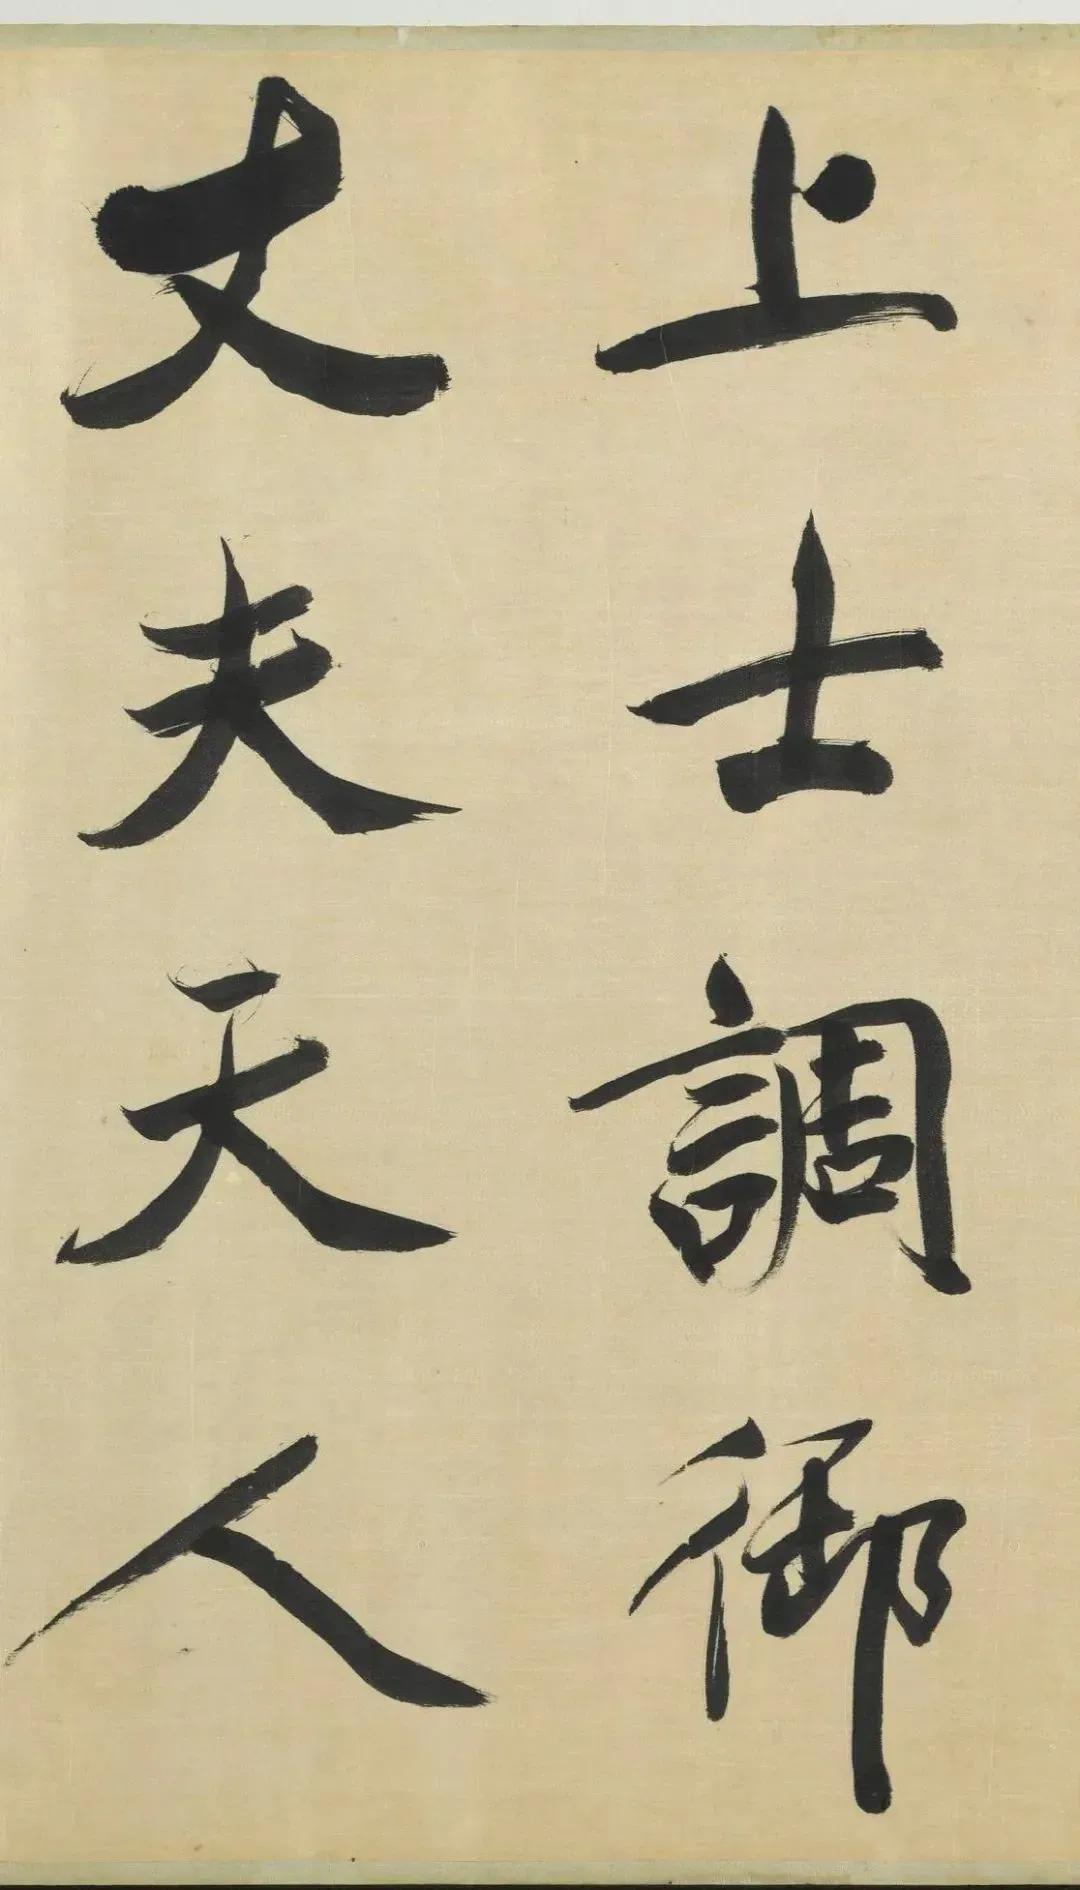 上士調御
丈夫天人